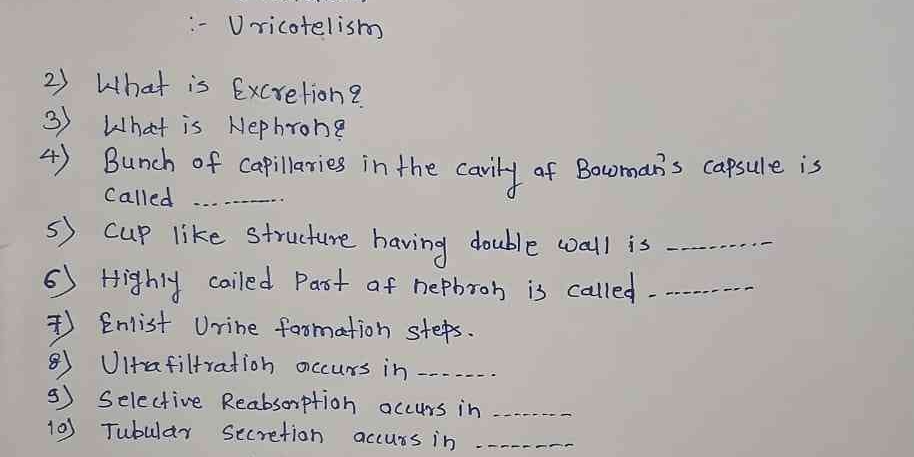 :- Uricotelism
2) What is Excretion?
3) What is Nephron?
4) Bunch of capillaries in the cavity of Bowman's capsule is
called ----------
5) Cup like structure having double wall is ----------
6) Highly coiled Part of nephron is called ----------
7) Enlist Urine formation steps.
8) Ultrafiltration occurs in -------
9) Selective Reabsorption occurs in --------
10) Tubular Secretion occurs in ---------